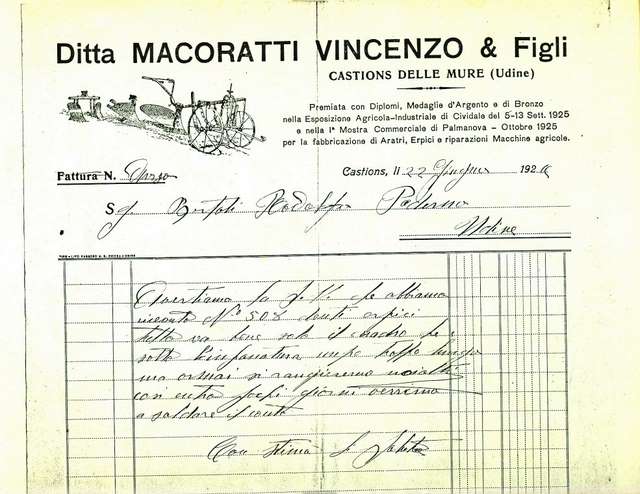 Ditta MACORATTI VINCENZO & Figli
CASTIONS DELLE MURE (Udine)
Premiata con Diplomi, Medaglie d'Argento e di Bronzo
nella Esposizione Agricola-Industriale di Cividale del 5-13 Sett. 1925
e nella Iª Mostra Commerciale di Palmanova - Ottobre 1925
per la fabbricazione di Aratri, Erpici e riparazioni Macchine agricole.
Fattura N.
Castions, li 22 Giugno 192
Sg. Bortoli Rodolfo Paderno
Udine
Avertiamo la S. V. che abbiamo
N° 508 denti erpici
tutto va bene solo il quadro per
sotto troppo lungo
ma ormai si rangieremo noialtri
con entro pochi giorni verremo
a saldare il conto
Con stima